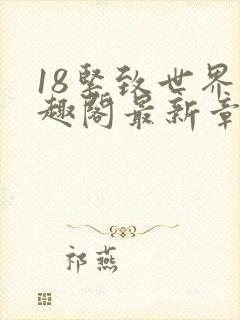 18坚致世界
趣阁最新章
祁燕